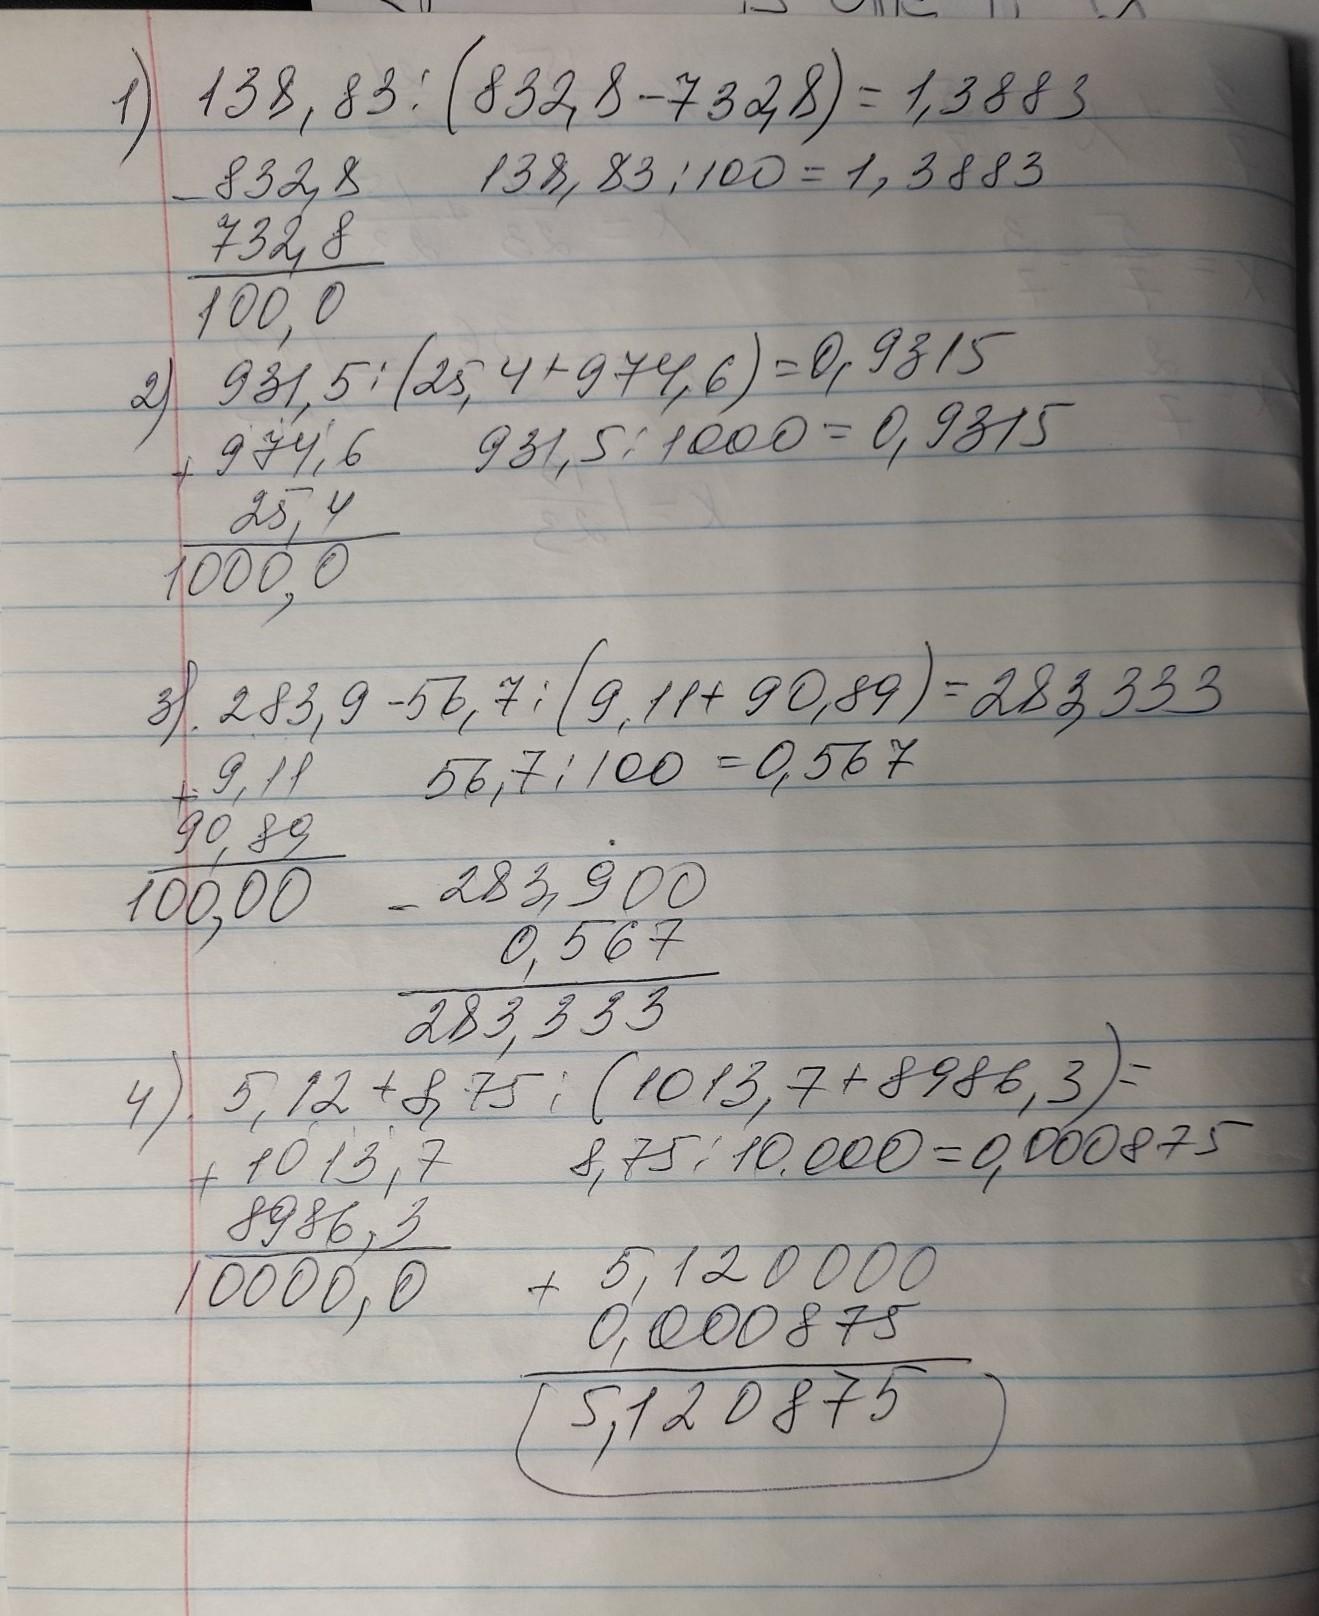 1) 138,83:(832,8-732,8)=1,3883
-832,8 138,83:100=1,3883
732,8
100,0
2) 931,5:(25,4+974,6)=0,9315
+974,6 931,5:1000=0,9315
25,4
1000,0
3). 283,9-56,7:(9,11+90,89)=283,333
+9,11 56,7:100=0,567
90,89
100,00 -283,900
0,567
283,333
4). 5,12+8,75:(1013,7+8986,3)=
+1013,7 8,75:10.000=0,000875
8986,3
10000,0 + 5,120000
0,000875
5,120875